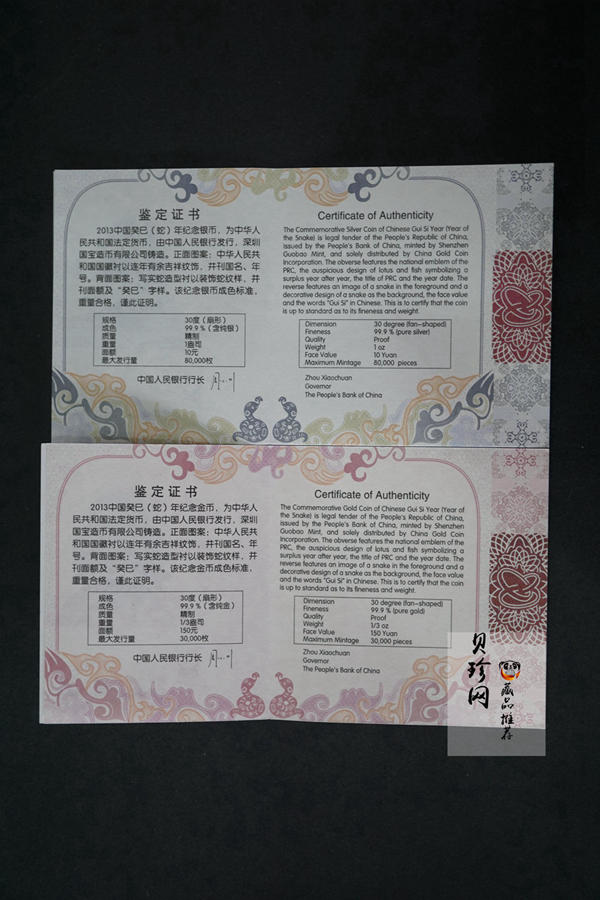 鉴定证书
2013中国癸巳（蛇）年纪念银币，为中华人
民共和国法定货币，由中国人民银行发行，深圳
国宝造币有限公司铸造。正面图案：中华人民共
和国国徽衬以连年有余吉祥纹饰，并刊国名、年
号。背面图案：写实蛇造型衬以装饰蛇纹样，并
刊面额及“癸巳”字样。该纪念银币成色标准，
重量合格，谨此证明。
规格 30度（扇形）
成色 99.9％（含纯银）
质量 精制
重量 1盎司
面额 10元
最大发行量 80,000枚
中国人民银行行长
Certificate of Authenticity
The Commemorative Silver Coin of Chinese Gui Si Year (Year of
the Snake) is legal tender of the People's Republic of China,
issued by the People's Bank of China, minted by Shenzhen
Guobao Mint, and solely distributed by China Gold Coin
Incorporation. The obverse features the national emblem of the
PRC, the auspicious design of lotus and fish symbolizing a
surplus year after year, the title of PRC and the year date. The
reverse features an image of a snake in the foreground and a
decorative design of a snake as the background, the face value
and the words "Gui Si" in Chinese. This is to certify that the coin
is up to standard as to its fineness and weight.
Dimension 30 degree (fan-shaped)
Fineness 99.9 % (pure silver)
Quality Proof
Weight 1 oz
Face Value 10 Yuan
Maximum Mintage 80,000 pieces
Zhou Xiaochuan
Governor
The People's Bank of China
鉴定证书
2013中国癸巳（蛇）年纪念金币，为中华人
民共和国法定货币，由中国人民银行发行，深圳
国宝造币有限公司铸造。正面图案：中华人民共
和国国徽衬以连年有余吉祥纹饰，并刊国名、年
号。背面图案：写实蛇造型衬以装饰蛇纹样，并
刊面额及“癸巳”字样。该纪念金币成色标准，
重量合格，谨此证明。
规格 30度（扇形）
成色 99.9％（含纯金）
质量 精制
重量 1/3盎司
面额 150元
最大发行量 30,000枚
中国人民银行行长
Certificate of Authenticity
The Commemorative Gold Coin of Chinese Gui Si Year (Year of
the Snake) is legal tender of the People's Republic of China,
issued by the People's Bank of China, minted by Shenzhen
Guobao Mint, and solely distributed by China Gold Coin
Incorporation. The obverse features the national emblem of the
PRC, the auspicious design of lotus and fish symbolizing a
surplus year after year, the title of PRC and the year date. The
reverse features an image of a snake in the foreground and a
decorative design of a snake as the background, the face value
and the words "Gui Si" in Chinese. This is to certify that the coin
is up to standard as to its fineness and weight.
Dimension 30 degree (fan-shaped)
Fineness 99.9 % (pure gold)
Quality Proof
Weight 1/3 oz
Face Value 150 Yuan
Maximum Mintage 30,000 pieces
Zhou Xiaochuan
Governor
The People's Bank of China
贝珍网
藏品推荐